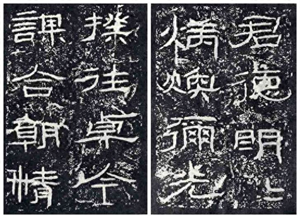 君德明〻
炳煥彌光
揆往卓今
謀合朝情